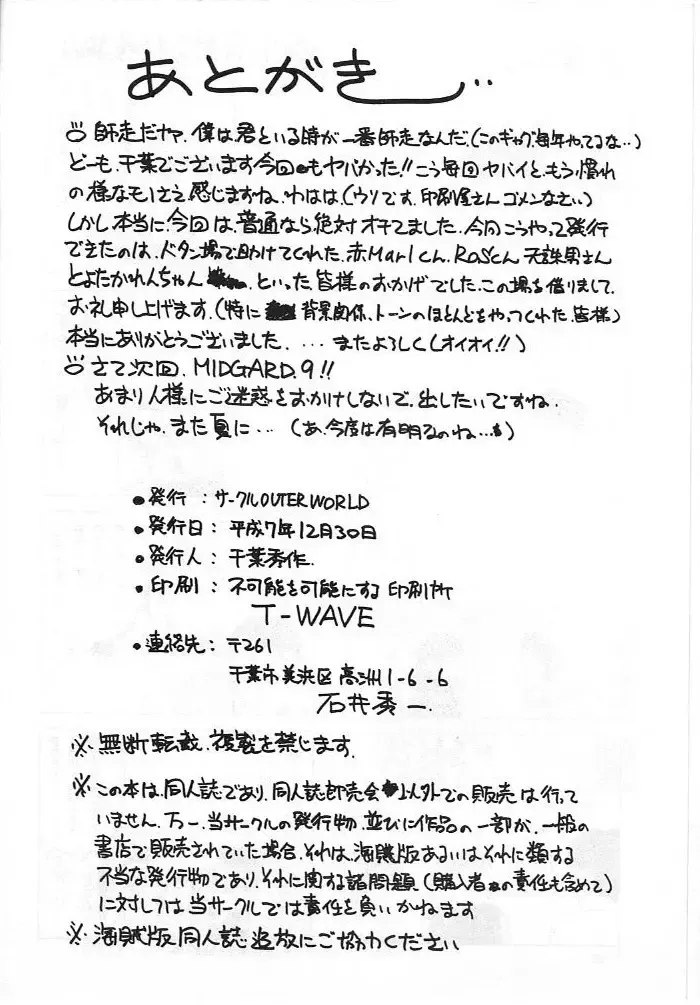 あとがき...
師走だヤァ. 僕は君といる時が一番師走なんだ.(このギャグ毎年やってるな..)
どーも.千葉でございます今回もヤバかった!! こう毎回ヤバイと、もう慣れ
の様なモノさえ感じますね. わはは.(ウソです.印刷屋さんゴメンなさい)
しかし本当に今回は.普通なら絶対オチてました. 今回こうやって発行
できたのは、ドタン場で助けてくれた.赤Marlくん. RaSくん 天誅男さん
とよたかれんちゃん .といった皆様のおかげでした.この場を借りまして.
お礼申し上げます.(特に 背景関係、トーンのほとんどをやってくれた.皆様)
本当にありがとうございました. ... またよろしく(オイオイ!!)
さて次回. MIDGARD 9!!
あまり人様にご迷惑をおかけしないで.出したいですね.
それじゃ.また夏に... (あ.今度は有明るのね...)
●発行 : サークルOUTER WORLD
●発行日 : 平成7年12月30日
●発行人 : 千葉秀作.
●印刷 : 不可能を可能にする印刷所
T-WAVE
●連絡先 : 〒261
千葉市美浜区高洲1-6-6
石井秀一.
※無断転載.複製を禁じます.
※この本は.同人誌であり.同人誌即売会 以外での販売は行って
いません. 万一.当サークルの発行物.並びに作品の一部が.一般の
書店で販売されていた場合.それは.海賊版あるいはそれに類する
不当な発行物であり.それに関する諸問題(購入者の責任も含めて)
に対しては当サークルでは責任を負いかねます
※海賊版同人誌追放にご協力ください